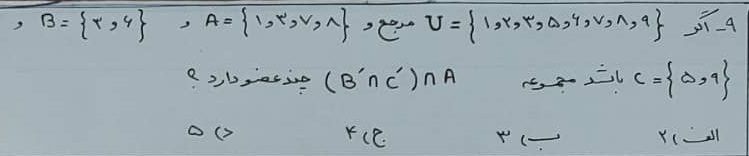 ۹_ اگر U = {۱و۲و۳و۵و۶و۷و۸و۹} مرجع و A = {۱و۳و۷و۸} و B = {۲و۶} و
C = {۵و۹} باشد مجموعه (B′∩C′)∩A چند عضو دارد ؟
الف) ۲ ب) ۳ ج) ۴ د) ۵